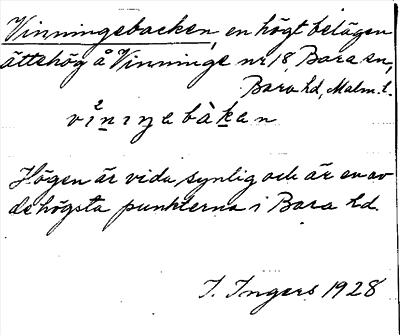 Vinningebacken, en högt belägen
ättehög å Vinninge nr 18, Bara sn,
Bara hd, Malm. l.
vi̊niŋabàkan
Högen är vida synlig och är en av
de högsta punkterna i Bara hd.
I. Ingers 1928